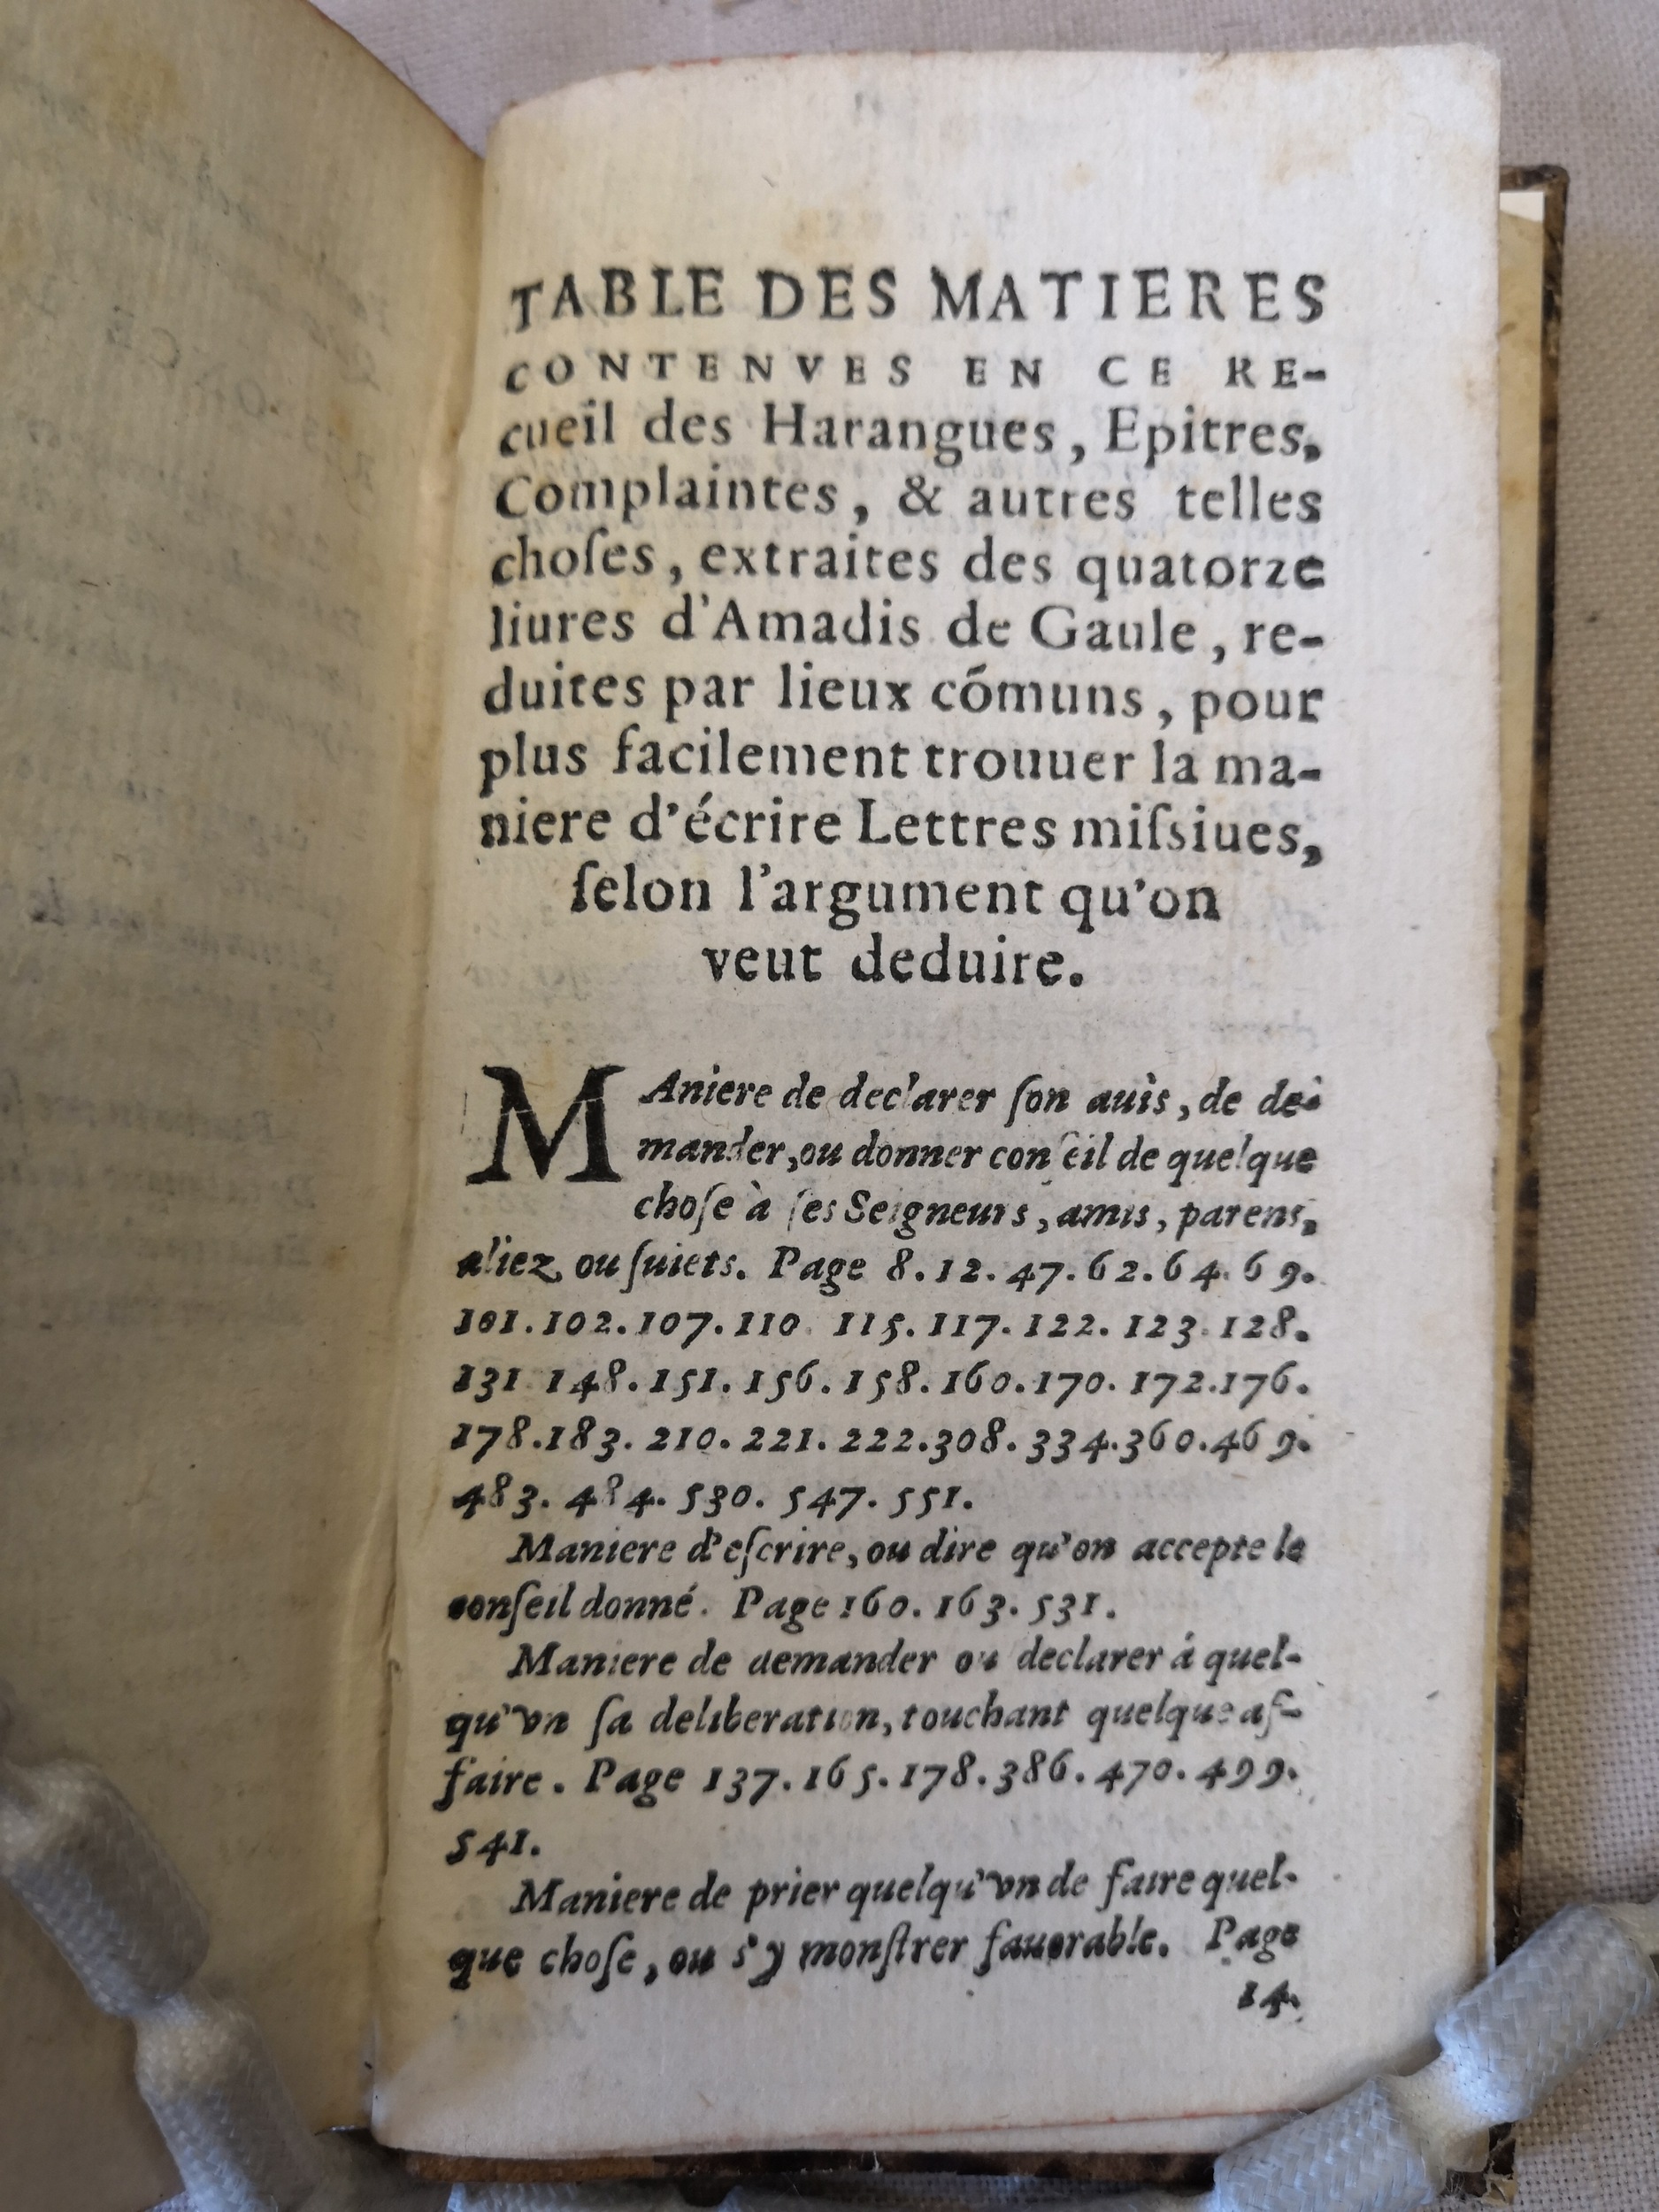 TABLE DES MATIERES
CONTENVES EN CE RE-
cueil des Harangues, Epitres,
Complaintes, & autres telles
choſes, extraites des quatorze
liures d'Amadis de Gaule, re-
duites par lieux cõmuns, pour
plus facilement trouuer la ma-
niere d'écrire Lettres miſsiues,
ſelon l'argument qu'on
veut deduire.
MAniere de declarer ſon auìs, de de-
mander, ou donner conſeil de quelque
choſe à ſes Seigneurs, amis, parens,
aliez, ou ſuiets. Page 8. 12. 47. 62. 64. 69.
101. 102. 107. 110. 115. 117. 122. 123. 128.
131. 148. 151. 156. 158. 160. 170. 172. 176.
178. 183. 210. 221. 222. 308. 334. 360. 469.
483. 484. 530. 547. 551.
Maniere d'eſcrire, ou dire qu'on accepte le
conſeil donné. Page 160. 163. 531.
Maniere de demander ou declarer á quel-
qu'vn ſa deliberation, touchant quelque af-
faire. Page 137. 165. 178. 386. 470. 499.
541.
Maniere de prier quelqu'vn de faire quel-
que choſe, ou s'y monſtrer fauorable. Page
14.